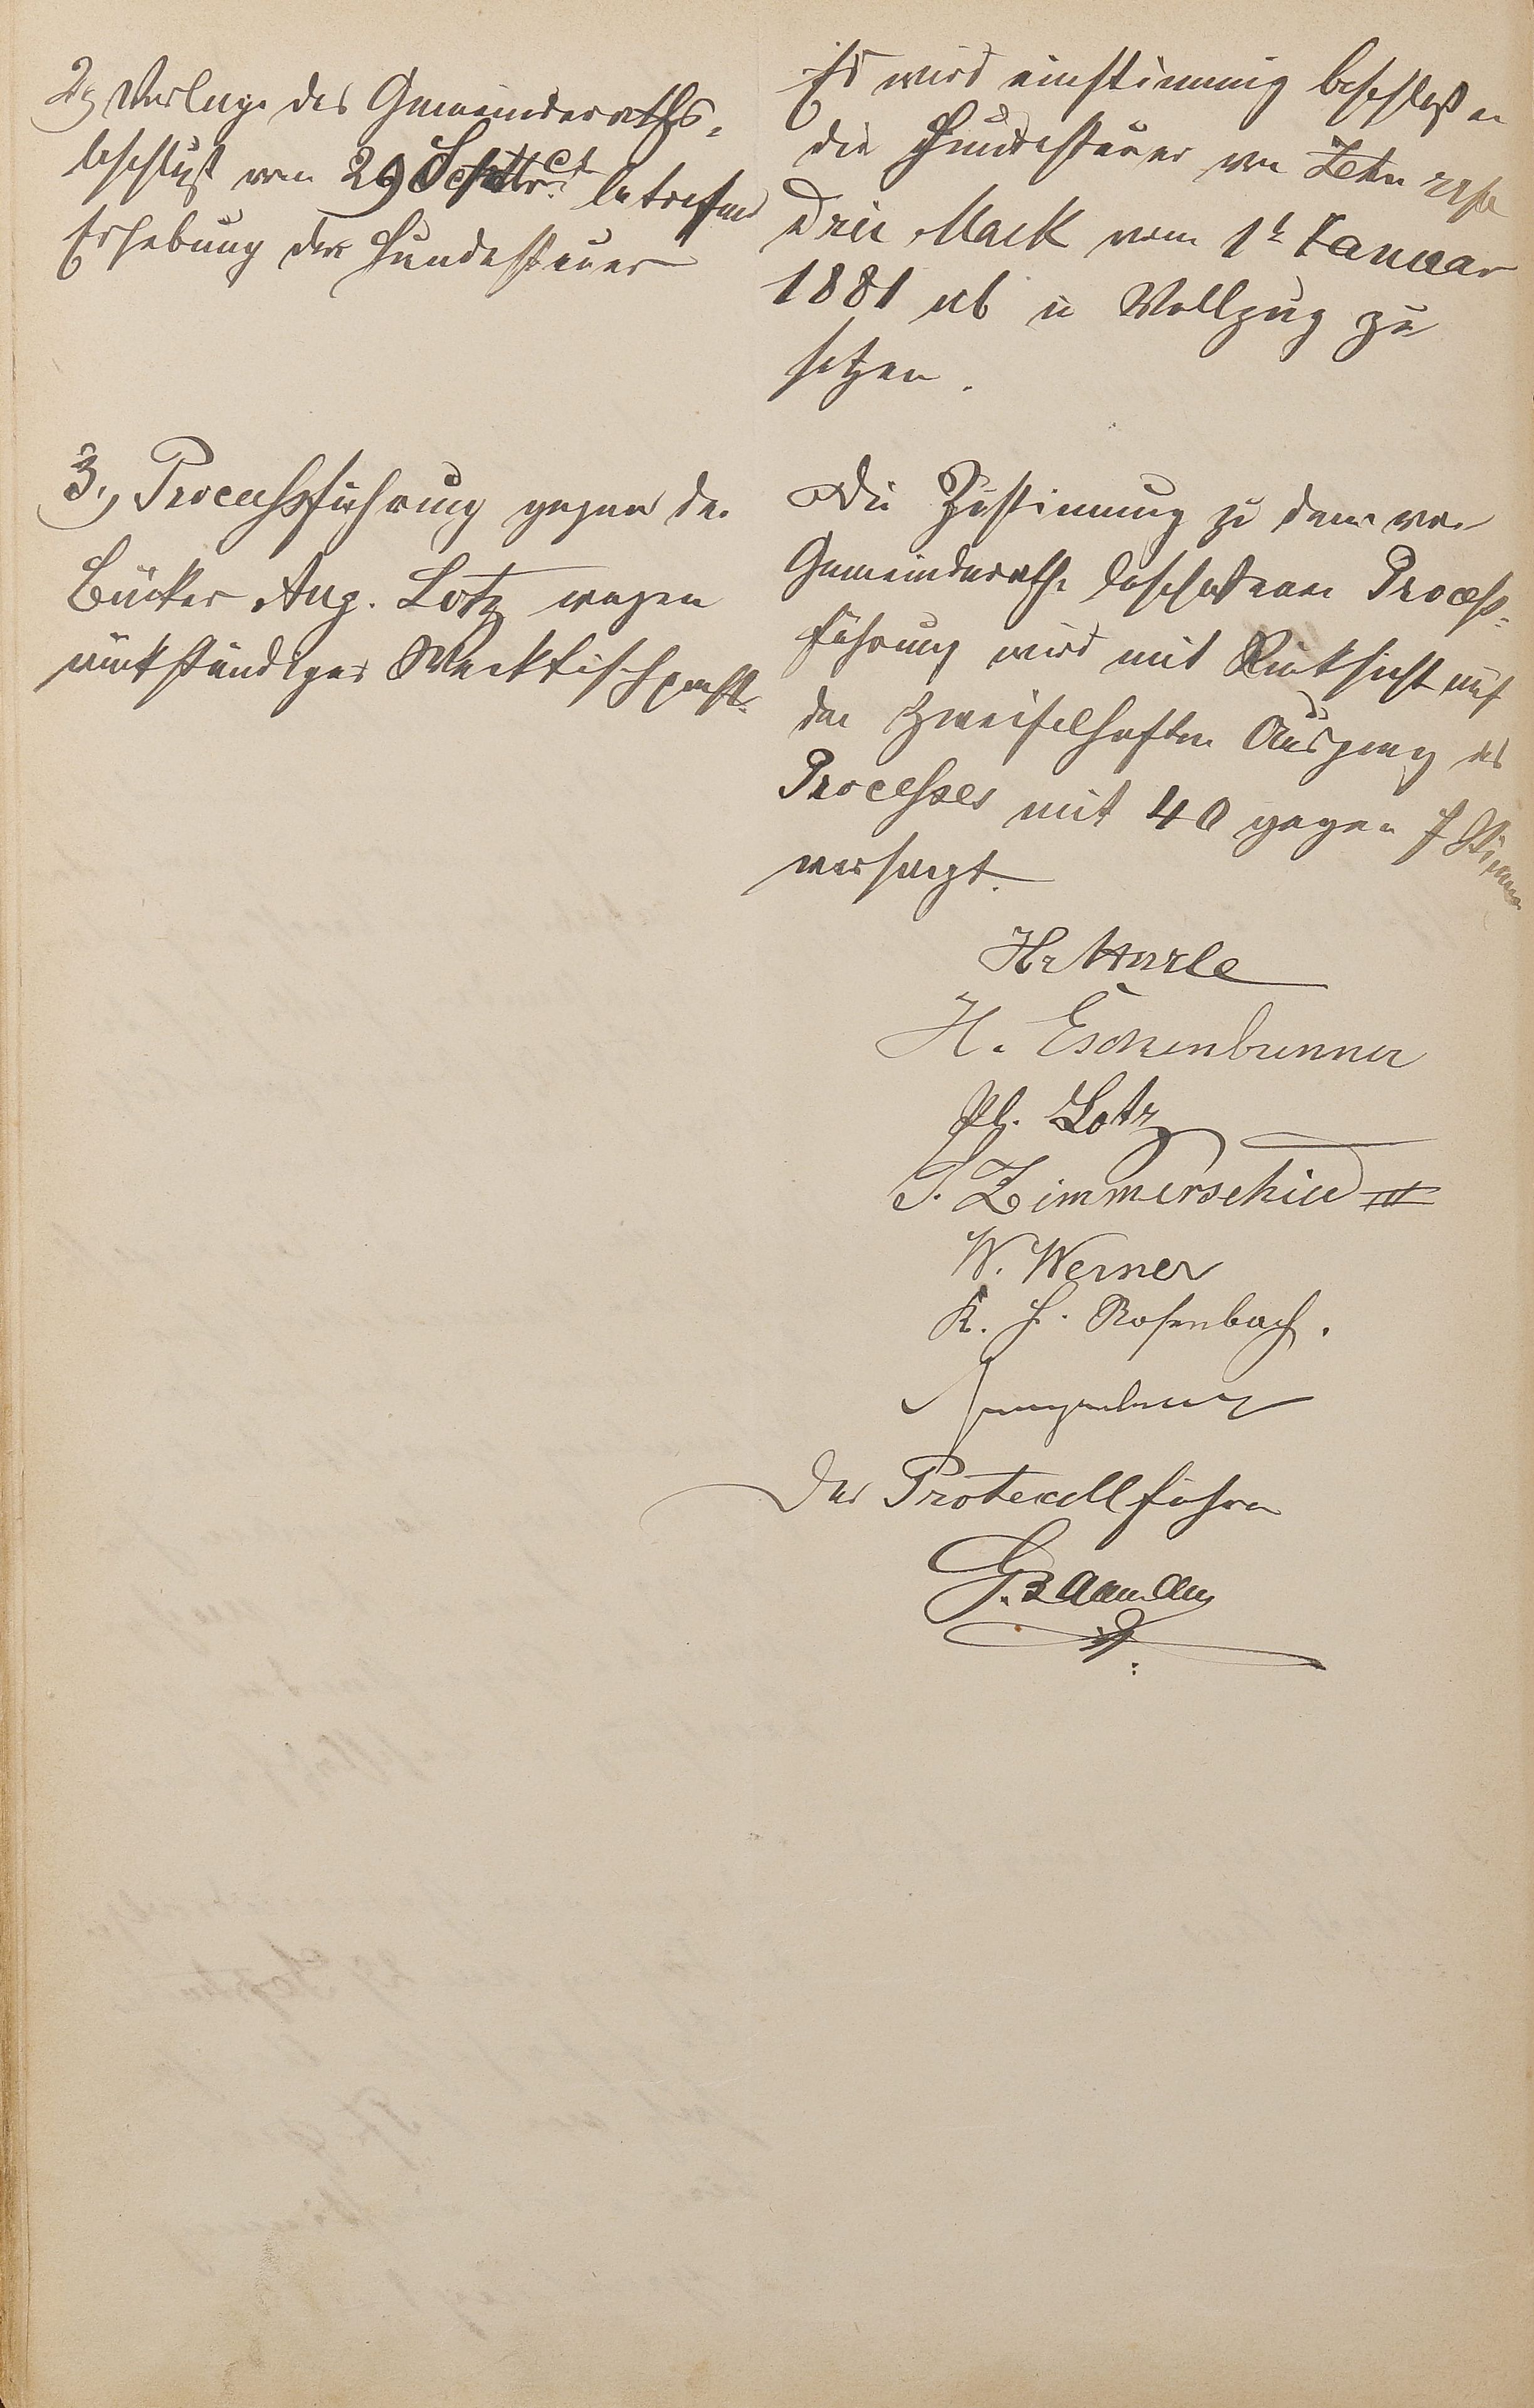 2, Vorlage des Gemeinderaths-
beschluß vom 29 Septbr ct betrefend
Erhebung der Hundesteuer
Es wird einstimmig beschloßen
die Hundesteuer von Zehn resp
Drei Mark vom 1t Januar
1881 ab in Vollzug zu
setzen.
3., Processführung gegen den
Bäcker Aug. Lotz wegen
rückständiger
Die Zustimmung zu dem vom
Gemeinderathe Proceß-
führung wird mit Rücksicht auf
den Zweifelhaften Ausgang des
Processes mit 40 gegen 7 Stimmen
versagt.
H.
H. Eschenbrenner
Ph. Lotz
P. Zimmerschied III
W. Werner
K. H. Rosenbach.
Der Protocollführer